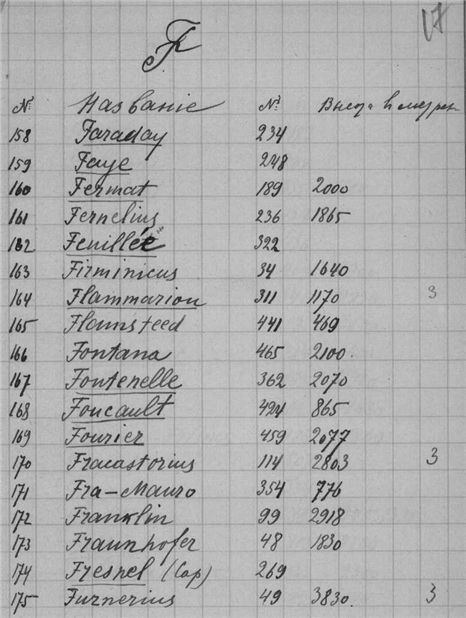 17
F
№ Названіе № Высота въ метрах
158 Faraday 234
159 Faye 248
160 Fermat 189 2000
161 Fernelius 236 1865
162 Feuillée 322
163 Firminicus 34 1640
164 Flammarion 311 1170 3
165 Flamsteed 441 469
166 Fontana 465 2100.
167 Fontenelle 362 2070
168 Foucault 424 865
169 Fourier 459 2077
170 Fracastorius 114 2803 3
171 Fra-Mauro 354 776
172 Franklin 99 2918
173 Fraunhofer 48 1830
174 Fresnel (Cap) 269
175 Furnerius 49 3830. 3